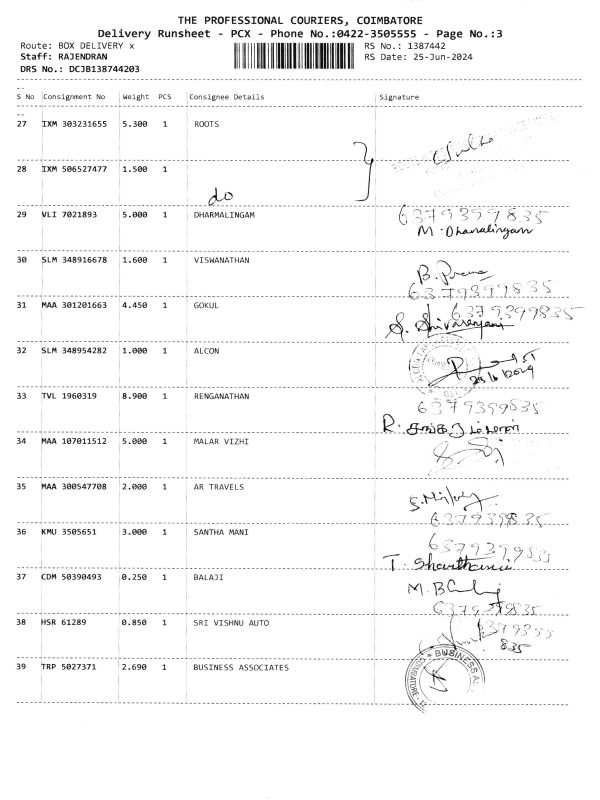 THE PROFESSIONAL COURIERS, COIMBATORE
Delivery Runsheet - PCX - Phone No.:0422-3505555 - Page No.:3
Route: BOX DELIVERY x RS No.: 1387442
Staff: RAJENDRAN RS Date: 25-Jun-2024
DRS No.: DCJB138744203
S No Consignment No Weight PCS Consignee Details Signature
27 IXM 303231655 5.300 1 ROOTS
28 IXM 506527477 1.500 1
do
29 VLI 7021893 5.000 1 DHARMALINGAM 6379399835
M. Dhanalingam
30 SLM 348916678 1.600 1 VISWANATHAN
6379399835
31 MAA 301201663 4.450 1 GOKUL 6379399835
S. Shivaranjani
32 SLM 348954282 1.000 1 ALCON
33 TVL 1960319 8.900 1 RENGANATHAN 6379399835
R.
34 MAA 107011512 5.000 1 MALAR VIZHI
35 MAA 300547708 2.000 1 AR TRAVELS
36 KMU 3505651 3.000 1 SANTHA MANI 6379399835
T.
37 CDM 50390493 0.250 1 BALAJI M.
38 HSR 61289 0.850 1 SRI VISHNU AUTO
835
39 TRP 5027371 2.690 1 BUSINESS ASSOCIATES